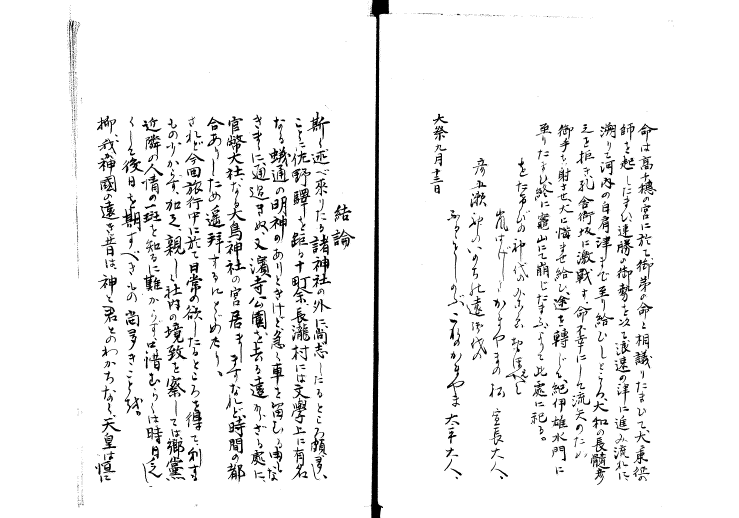 命は高千穂の宮に於て御弟の命と相議りたまひて、大東征の
師を起したまひ連勝の御勢を以て浪速の津に進み流れに
溯りて河内の白肩津まで至り給ひしところ、大和の長髓彦
之を拒き孔舎衛坂に激戦す、命不幸にして流矢のため
御手を射させ大に悩ませ給ひ途を轉じて紀伊雄水門に
至りたまひ終に竈山にて崩じたまふ、よって此處に祀る。
をたけびの神代の
嵐はげしかまやまの松 宣長大人、
彦五瀬神の
かまやま 大平大人、
大祭九月十三日
結論
斯く述べ來りたる諸神社の外に尚志したるところ頗多し、
ことに佐野驛を距る十町余長瀧村には文學上に有名
なる蟻通の明神のありときけど急く車を留むる由もな
きまに通過きぬ、又濱寺公園を去る遠からざる處に、
官幣大社なる大鳥神社の宮居ましますなれど、時間の都
合ありしため遥拜するにとゞめたり、
されど今回旅行中に於て日常の欲したるところを得て利す
もの少からず、加之、親しく社内の境致を察しては郷黨
近隣の人情の一斑を知るに難からず、只惜むらくは時日乏し
くして後日を期すべきもの尚多きことを。
抑、我神國の遠き昔は、神と君とのわかちなく、天皇は恒に